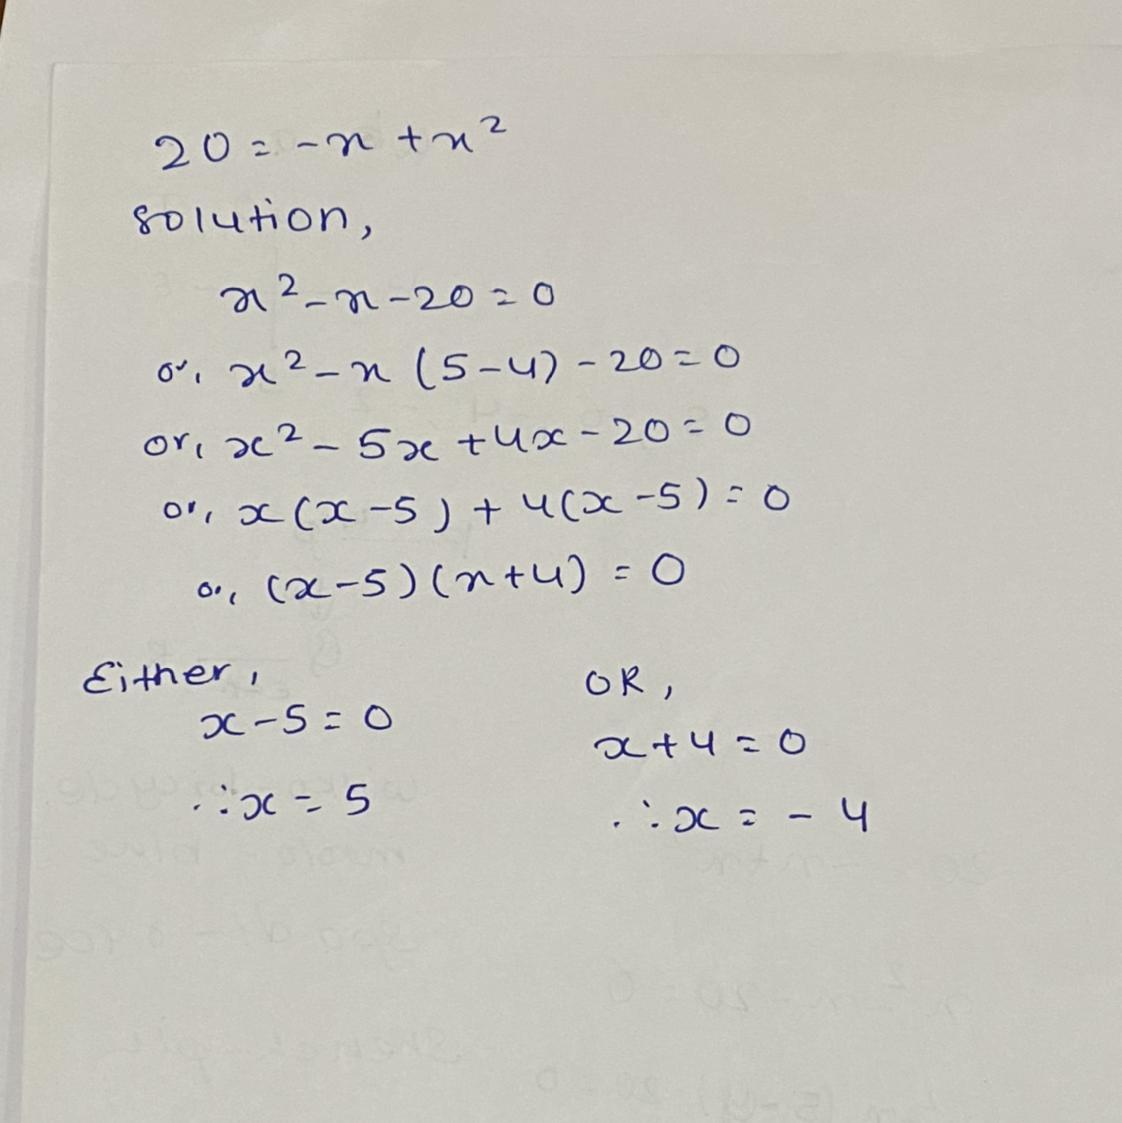 20 = -x + x²
Solution,
x² - x - 20 = 0
or, x² - x (5 - 4) - 20 = 0
or, x² - 5x + 4x - 20 = 0
or, x(x - 5) + 4(x - 5) = 0
or, (x - 5)(x + 4) = 0
Either,
x - 5 = 0
∴ x = 5
OR,
x + 4 = 0
∴ x = - 4